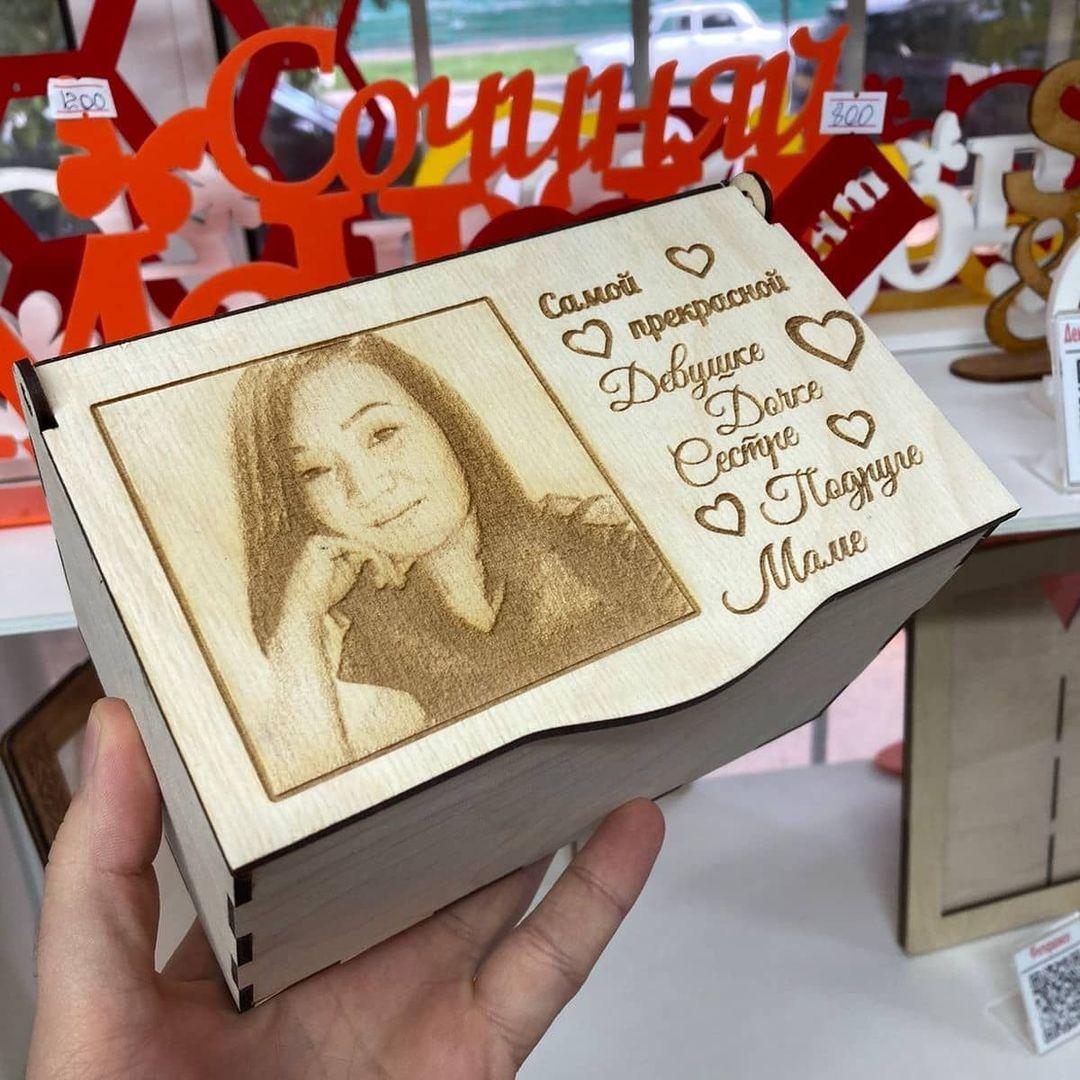 1200
Сочиняй
800
Самой
прекрасной
Девушке
Дочке
Сестре
Подруге
Маме